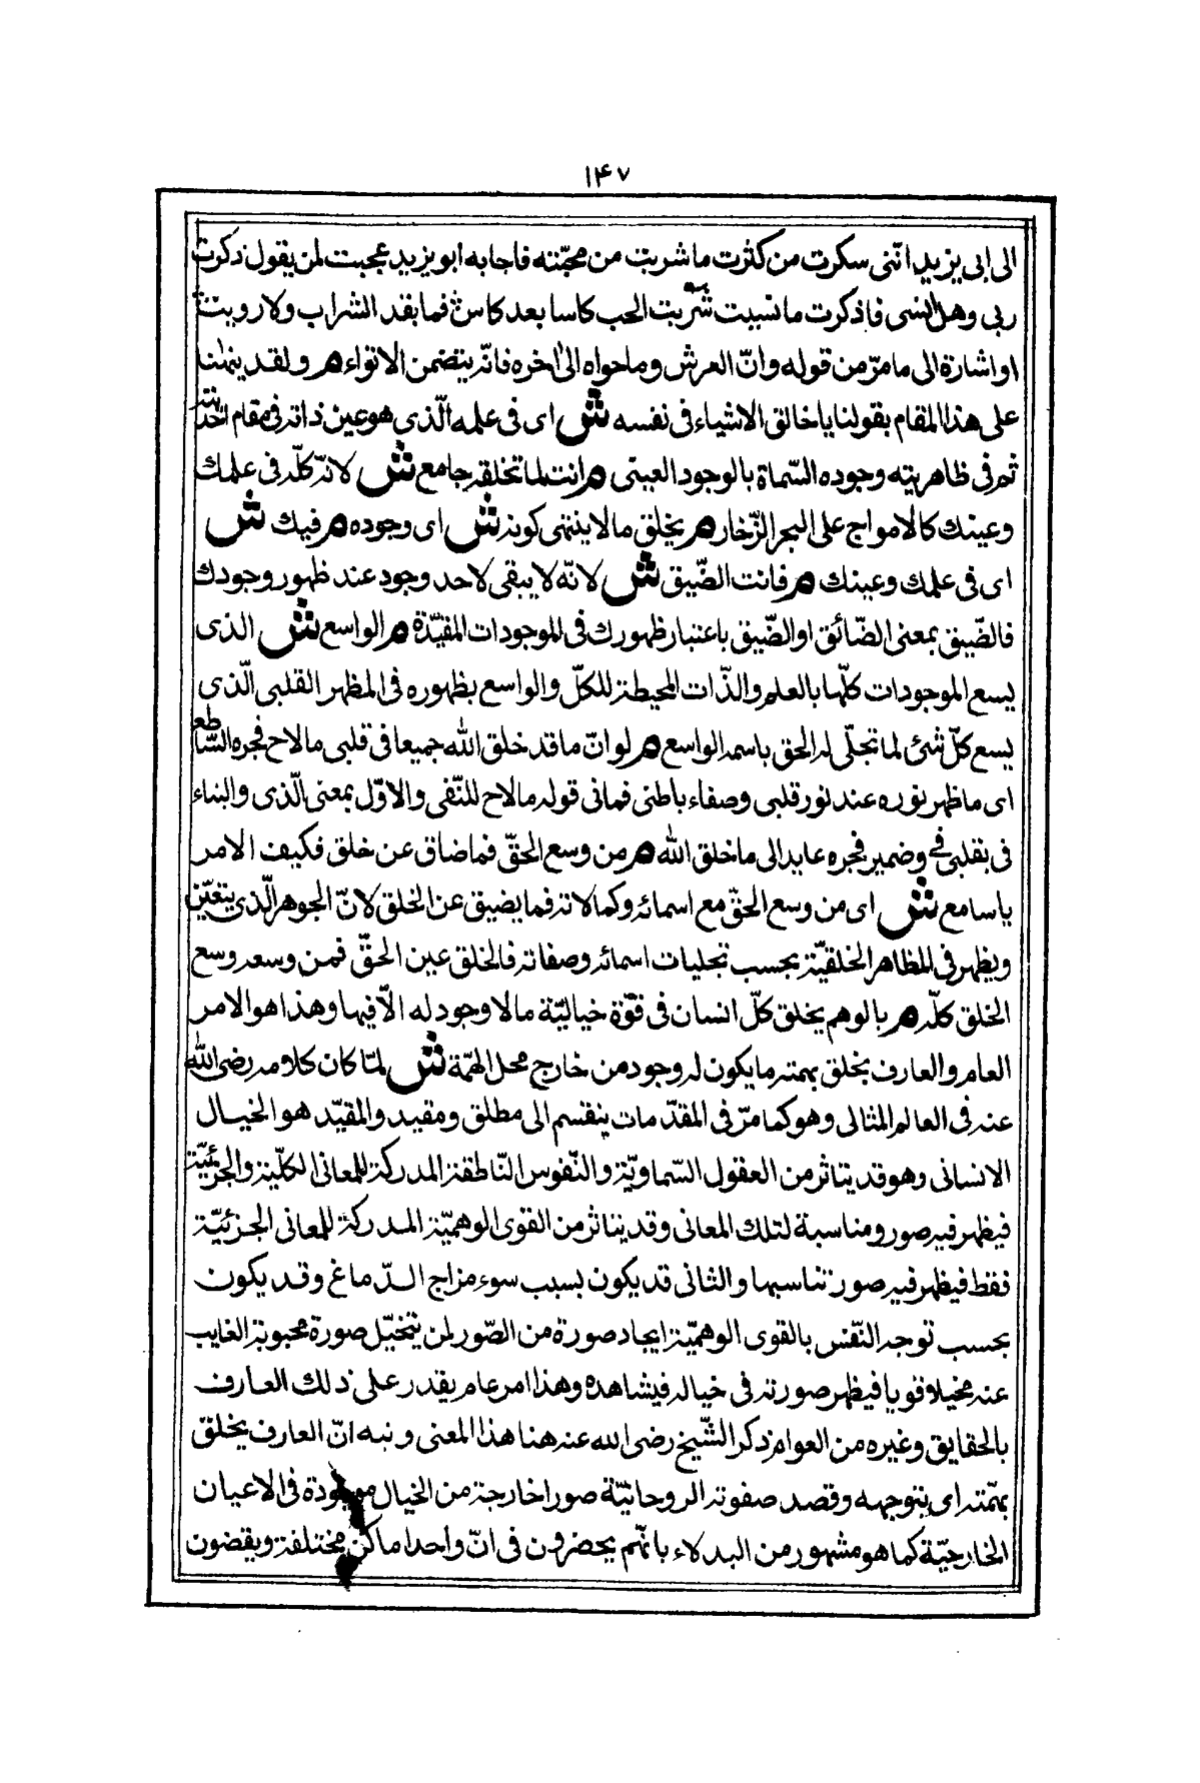 ۱۴۷
الى ابى يزيد انّنى سكرت من كثرت ما شربت من محبّته فاجابه ابو يزيد عجبت لمن يقول ذكرت
ربى وهل انسى فاذكرت ما نسيت شربت الحب كاسا بعد كاس فما نفد الشراب ولا رويت
او اشارة الى ما مرّ من قوله وانّ العرش وما حواه الى اخره فانّه يتضمن الاتواء م ولقد ينهنا
على هذا المقام بقولنا يا خالق الاشياء فى نفسه ش اى فى علمه الّذى هو عين ذاته فى مقام احديته
ثم فى ظاهريته وجوده السّماة بالوجود العينى م انت لما تخلقه جامع ش لانّه كلّه فى علمك
وعينك كالامواج على البحر الزّخار م يخلق ما لا ينتهى كونه ش اى وجوده م فيك ش
اى فى علمك وعينك م فانت الضّيق ش لانّه لا يبقى لاحد وجود عند ظهور وجودك
فالضّيق بمعنى الضّائق او الضّيق باعتبار ظهورك فى الموجودات المقيّدة م الواسع ش الذى
يسع الموجودات كلّها بالعلم والذّات المحيطة للكلّ والواسع بظهوره فى المظهر القلبى الّذى
يسع كلّ شئ لما تجلّى له الحق باسمه الواسع م لو انّ ما قد خلق الله جميعا فى قلبى ما لاح فجره السّاطع
اى ما ظهر نوره عند نور قلبى وصفاء باطنى فمانى قوله ما لاح للنّفى والاوّل بمعنى الّذى والبناء
فى بقلبى فى وضمير فجره عايد الى ما خلق الله م من وسع الحقّ فما ضاق عن خلق فكيف الامر
يا سامع ش اى من وسع الحقّ مع اسمائه وكمالاته فما يضيق عن الخلق لانّ الجوهر الّذى يتعيّن
ويظهر فى المظاهر الخلقيّة بحسب تجليات اسمائه وصفاته فالخلق عين الحقّ فمن وسعه وسع
الخلق كلّه م بالوهم يخلق كلّ انسان فى قوّة خياليّة ما لا وجود له الّا فيها وهذا هو الامر
العام والعارف يخلق بهمته ما يكون له وجود من خارج محل الهمّة ش لمّا كان كلامه رضى الله
عنه فى العالم المثالى وهو كما مرّ فى المقدّمات ينقسم الى مطلق ومقيد والمقيّد هو الخيال
الانسانى وهو قد يتاثر من العقول السّماويّة والنّفوس النّاطقة المدركة للمعانى الكلّية والجزئيّة
فيظهر فيه صور ومناسبة لتلك المعانى وقد يتاثر من القوى الوهميّة المدركة للمعانى الجزئيّة
فقط فيظهر فيه صورة تناسبها والثانى قد يكون بسبب سوء مزاج الدّماغ وقد يكون
بحسب توجه النّفس بالقوى الوهميّة ايجاد صورة من الصّور لمن يتخيّل صورة محبوبة الغايب
عنه مخيلا قويا فيظهر صورته فى خياله فيشاهده وهذا امر عام يقدر على ذلك العارف
بالحقايق وغيره من العوام ذكر الشّيخ رضى الله عنه هنا هذا المعنى ونبه انّ العارف يخلق
بهمّته اى بتوجهه وقصد صفوته الروحانيّة صورا خارجة من الخيال موجودة فى الاعيان
الخارجيّة كما هو مشهور من البدلاء بانّهم يحضرون فى انّ واحد اماكن مختلفة ويقضون